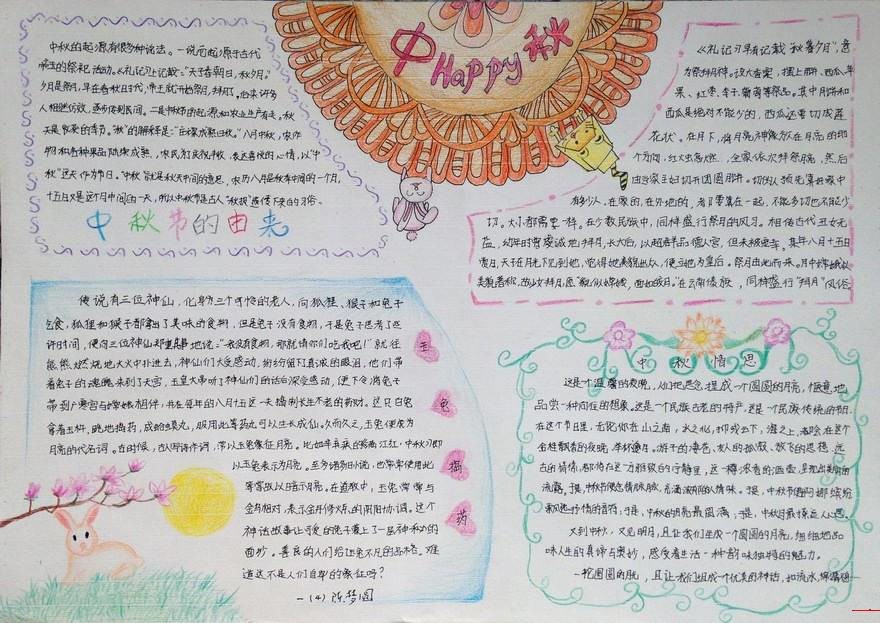 中 Happy 秋
中秋的起源有很多种说法。一说它起源于古代
帝王的祭祀活动。《礼记》上记载："天子春朝日,秋夕月。"
夕月是祭月,早在春秋时代,帝王就开始祭月、拜月了。后来许多
人相继仿效,逐步传到民间。二是中秋的起源和农业生产有关。秋
天是收获的季节。"秋"的解释是:"庄稼成熟曰秋。"八月中秋,农作
物和各种果品陆续成熟,农民为了庆祝丰收,表达喜悦的心情,以"中
秋"这天作为节日。"中秋"就是秋天中间的意思,农历八月是秋季中间的一个月,
十五日又是这个月中间的一天,所以中秋节是古人
中秋节的由来
《礼记》早有记载"秋暮夕月",意
为祭拜月神。设大香案,摆上月饼、西瓜、苹
果、红枣、李子、葡萄等祭品。其中月饼和
西瓜是绝对不能少的,西瓜还要切成莲
花状。在月下,将月亮神像放在月亮的那
个方向,红烛高燃,全家依次拜祭月亮,然后
由当家主妇切开团圆月饼。切的人预先算好家中
有多少人,在家的,在外地的,都要算在一起,不能多切也不能少
切。大小都需要一样。在少数民族中,同样盛行祭月的风习。相传古代丑女无
盐,幼年时曾虔诚地拜月,长大后,以超群品德入宫,但未被宠幸。某年八月十五日
赏月,天子在月光下见到她,觉得她美貌出众,便立她为皇后。祭月由此而来。月中嫦娥以
美貌著称,故少女拜月,愿"貌似嫦娥,面如皓月"。在云南傣族,同样盛行"拜月"风俗
传说有三位神仙,化身为三个可怜的老人,向狐狸、猴子和兔子
乞食,狐狸和猴子都拿出了美味的食物,但是兔子没有食物,于是兔子思考了些
许时间,便向三位神仙郑重地说:"我没有食物,那就请你们吃我吧!"就往
熊熊燃烧地大火中扑进去,神仙们大受感动,纷纷留下真诚的眼泪,他们带
着兔子的魂魄来到了天宫,玉皇大帝听了神仙们的话后深受感动,便下令将兔子
带到广寒宫与嫦娥相伴,并在每年的八月十五这一天捣制长生不老的药材。这只白兔
拿着玉杵,跪地捣药,成蛤蟆丸,服用此等药丸可以长生成仙。久而久之,玉兔便成为
月亮的代名词。古时候,古人写诗作词,常以玉兔象征月亮。
以玉兔表示为月亮。至多诸历小说,也常常使用此
等客似以暗示月亮。在道教中,玉兔常常与
金乌相对,表示金丹修炼的阴阳协调。这个
神话故事让可爱的兔子蒙上了一层神秘的
面纱。善良的人们给让兔不凡的品格,难
道这不是人们自身的象征吗?
—(4)陈梦圆
玉
兔
捣
药
中秋情思
这是个温馨的夜晚,人们把思念捏成一个圆圆的月亮,惬意地
品尝一种向往的想象。这是一个民族古老的特产,这是一个民族传统的节日。
在这个节日里,无论你在山之南,水之北,抑或如下,海之上,都陶醉在这个
金桂飘香的夜晚,举杯邀月。游子的凄苍,友人的孤傲,放飞的思想,远
古的情愫,都停在这一方雅致的宁静里,这一樽浓香的酒壶,呈现出美丽的
流露。于是,中秋节便含情脉脉,充满浓郁的情味。于是,中秋节便闪耀缤纷
于是,中秋的月亮最圆满;于是,中秋月最情趣人心扉。
又到中秋,又见明月,且让我们生成一个圆圆的月亮,细细地品
味人生的真谛与奥妙,感受着生活一种韵味独特的魅力。